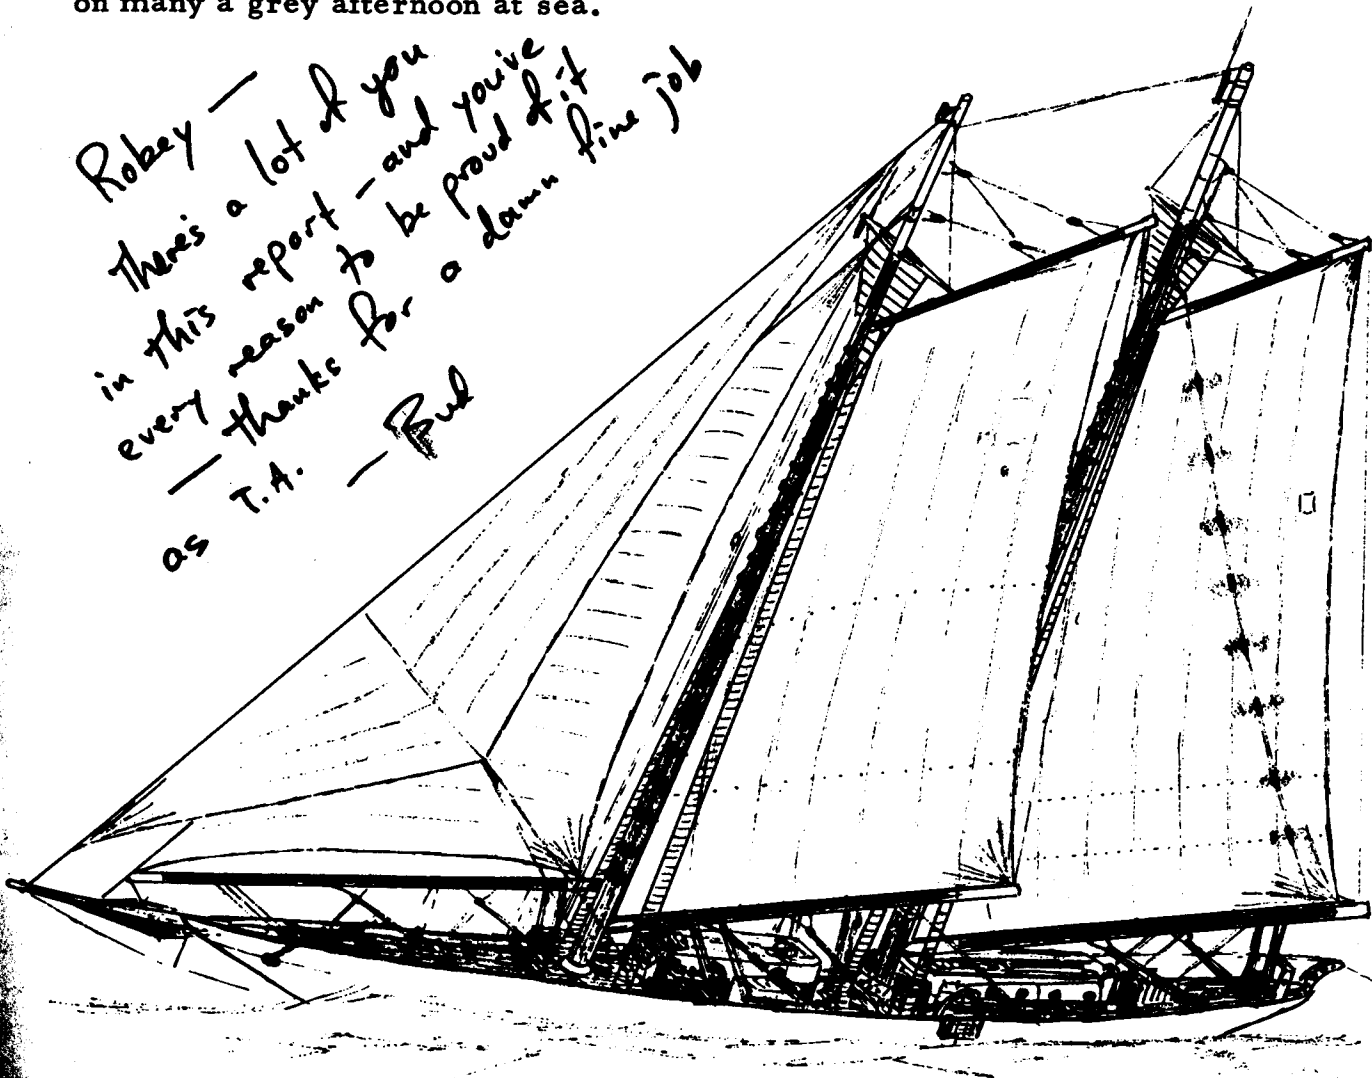 on many a grey afternoon at sea.
Robey —
There's a lot of you
in this report — and you've
every reason to be proud of it
— thanks for a damn fine job
as T.A.
— Bud